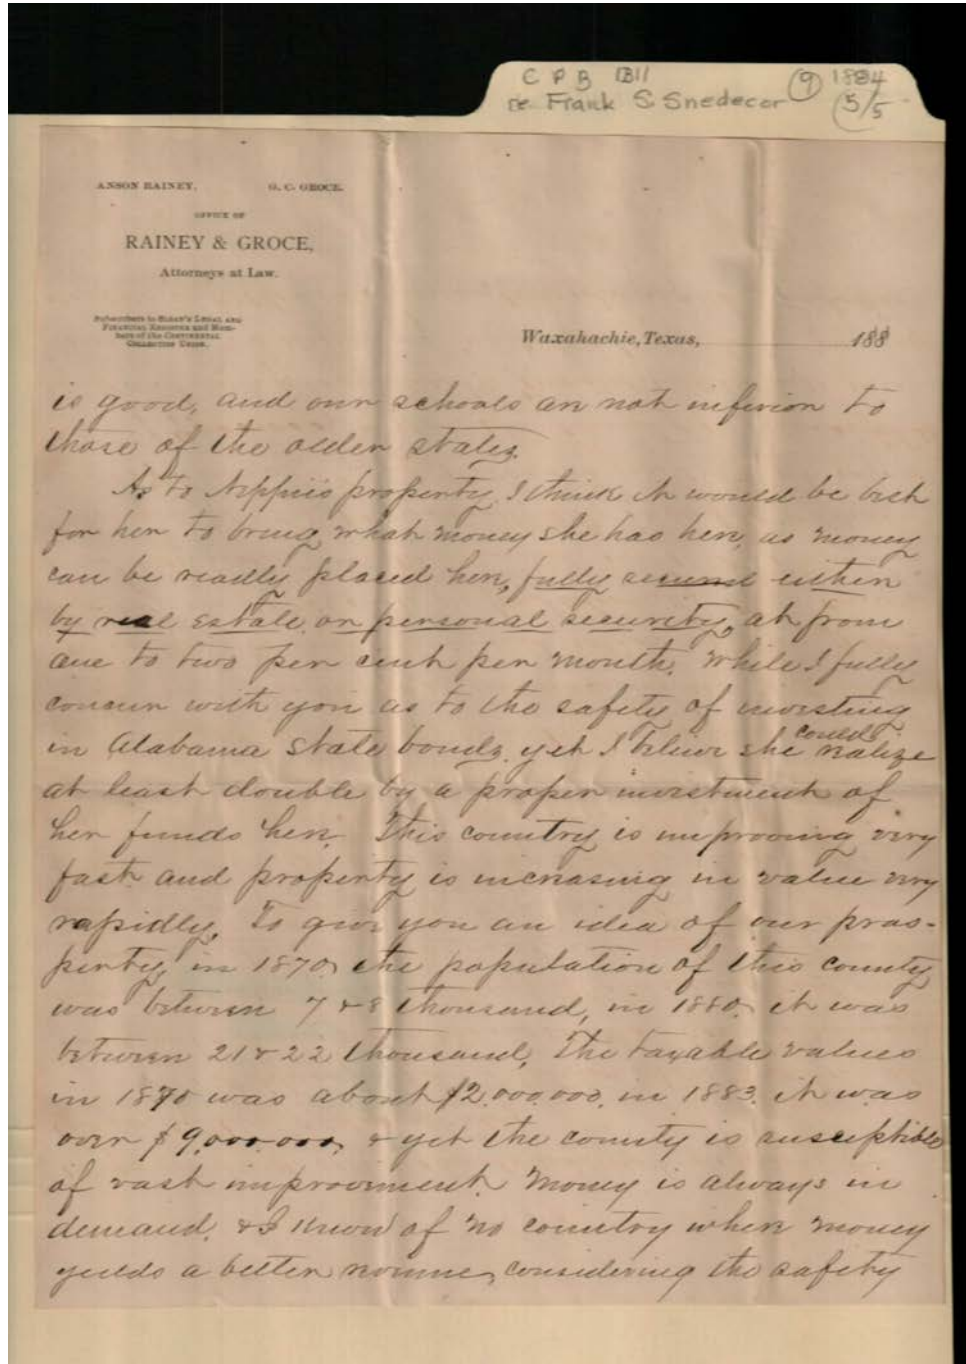 C P B 1311 ⑨ 1884
re Frank S Snedecor 5/5
ANSON RAINEY. G. C. GROCE.
OFFICE OF
RAINEY & GROCE,
Attorneys at Law.
Subscribers to Sloan's Legal and
Financial Register and Mem-
bers of the Continental
Collection Union.
Waxahachie, Texas, 188
is good, and our schools are not inferior to
those of the older states.
As to Neppie's property, I think it would be best
for her to bring what money she has here, as money
can be readly placed here, fully secured either
by real estate or personal security, at from
one to two per cent per month. While I fully
concur with you as to the safety of investing
in Alabama state bonds, yet I believe she could realize
at least double by a proper investment of
her funds here. This country is improving very
fast and property is increasing in value very
rapidly. To give you an idea of our pros-
perity, in 1870, the population of this county
was between 7 & 8 thousand, in 1880, it was
between 21 & 22 thousand. The taxable values
in 1870 was about $2.000.000. in 1883. it was
over $9.000.000, & yet the county is susceptible
of vast improvement. Money is always in
demand, & I know of no country where money
yields a better revenue, considering the safety